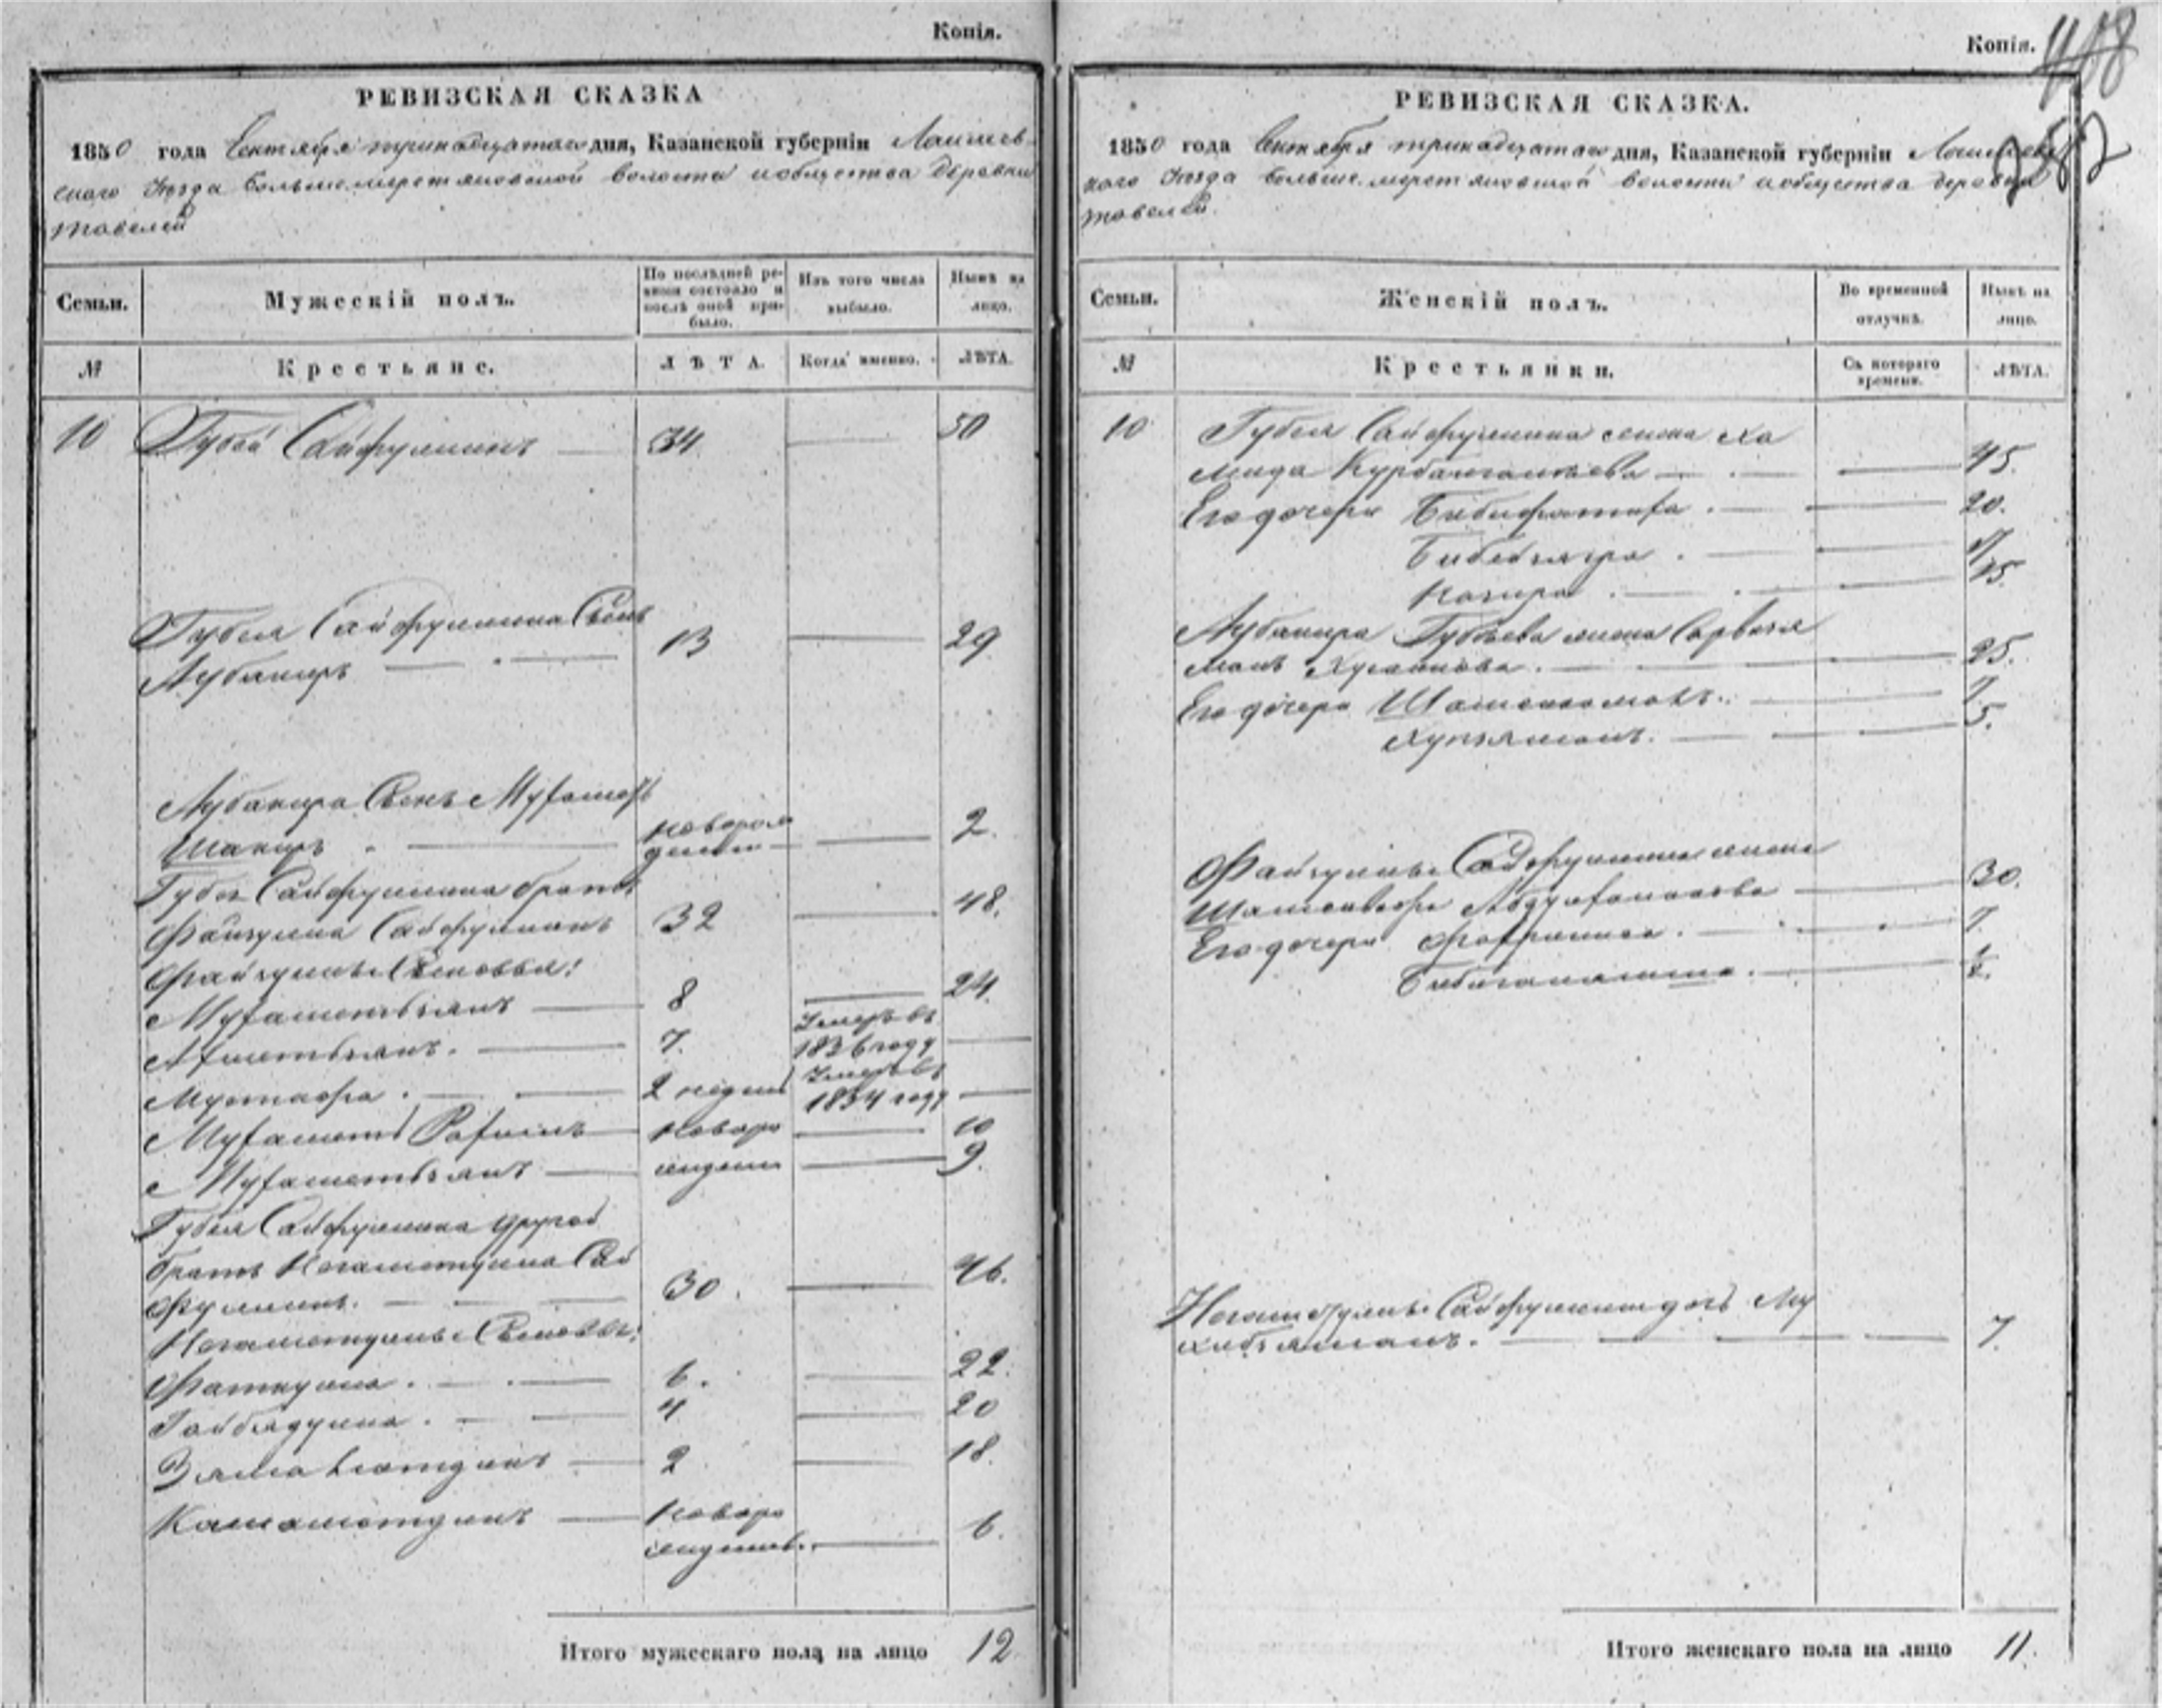 Копія.
РЕВИЗСКАЯ СКАЗКА
1850 года Сентября тринадцатаго дня, Казанской губерніи Лаишев-
скаго Уѣзда Большемеретяковской волости и общества деревни
Тавелей
Семьи.
Мужескій полъ.
По послѣдней ре-
визіи состояло и
послѣ оной при-
было.
Изъ того числа
выбыло.
Нынѣ на
лицо.
№
Крестьяне.
ЛѢТА.
Когда именно.
ЛѢТА.
10 Губей Сайфуллинъ 34 50
Губея Сайфуллина Сынъ
Аубакиръ 13 29
Аубакира Сынъ Мухаметъ
Шакиръ новорож
денъ 2.
Губея Сайфуллина братъ
Файзулла Сайфуллинъ 32 48.
Файзуллы Сыновья:
Мухаметзянъ 8 24.
Ахметзянъ. 7. Умеръ въ
1836 году
Мустафа. 2 недѣль Умеръ въ
1834 году
Мухаметъ Рахимъ новоро 10
Мухаметзянъ жденъ 9.
Губея Сайфуллина другой
братъ Негаметдулла Сай
фуллинъ. 30. 46.
Негаметдуллы Сыновья:
Фаткулла. 6. 22.
Гайбядулла. 4 20
Зямалетдинъ 2 18.
Камалетдинъ новоро
жденъ. 6.
Итого мужескаго пола на лицо 12
Копія.
408
РЕВИЗСКАЯ СКАЗКА.
1850 года Сентября тринадцатаго дня, Казанской губерніи Лаишев
скаго Уѣзда Большемеретяковской волости и общества деревни
Тавелей.
Семьи.
Женскій полъ.
Во временной
отлучкѣ.
Нынѣ на
лицо.
№
Крестьянки.
Съ котораго
времени.
ЛѢТА.
10 Губея Сайфуллина жена Ха
мида Курбангалеева 45.
Его дочери Бибифатиха. 20.
17
15.
Аубакира Губеева жена
25.
Его дочери 7
5.
Файзуллы Сайфуллина жена
30.
Его дочери 7.
Негаметдуллы Сайфуллина дочь Му
7.
Итого женскаго пола на лицо 11.